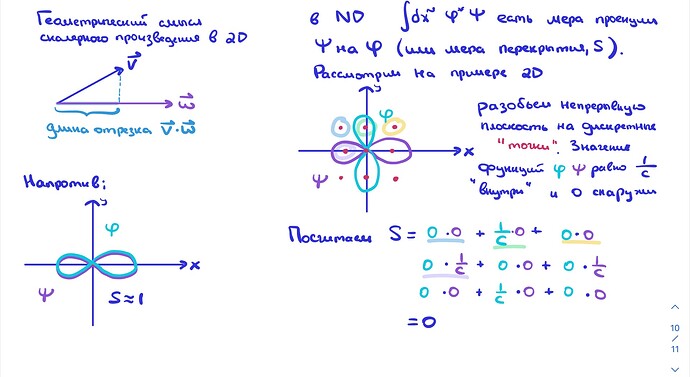 Геометрический смысл
скалярного произведения в 2D
v
w
длина отрезка v·w
Напротив:
y
φ
x
ψ
S≈1
в ND ∫dx^N φ* ψ есть мера проекции
ψ на φ (или мера перекрытия, S).
Рассмотрим на примере 2D
y
φ
x
ψ
разобьем непрерывную
плоскость на дискретные
"точки". Значения
функций φ ψ равно 1/c
"внутри" и 0 снаружи
Посчитаем S = 0·0 + 1/c·0 + 0·0
0·1/c + 0·0 + 0·1/c
0·0 + 1/c·0 + 0·0
=0
10
11